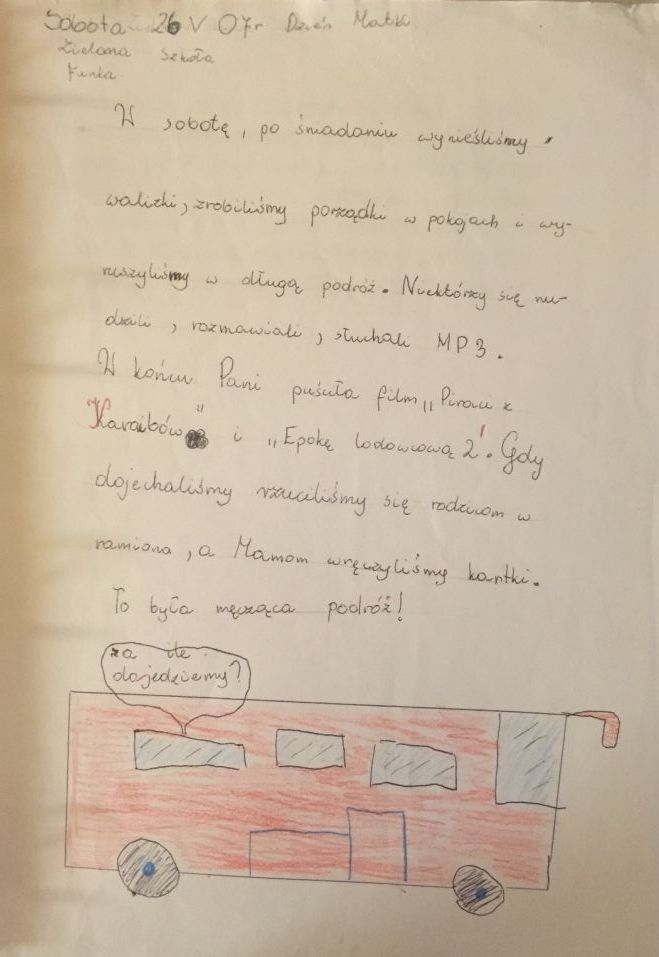 Sobota 26 V 07r Dzień Matki
Zielona Szkoła
Funka
W sobotę, po śniadaniu wynieśliśmy
walizki, zrobiliśmy porządki w pokojach i wy-
ruszyliśmy w długą podróż. Niektórzy się nu-
dzili, rozmawiali, słuchali MP3.
W końcu Pani puściła film „Piraci z
Karaibów" i „Epokę lodowcową 2". Gdy
dojechaliśmy rzuciliśmy się rodzicom w
ramiona, a Mamom wręczyliśmy kartki.
To była męcząca podróż!
za ile
dojedziemy?